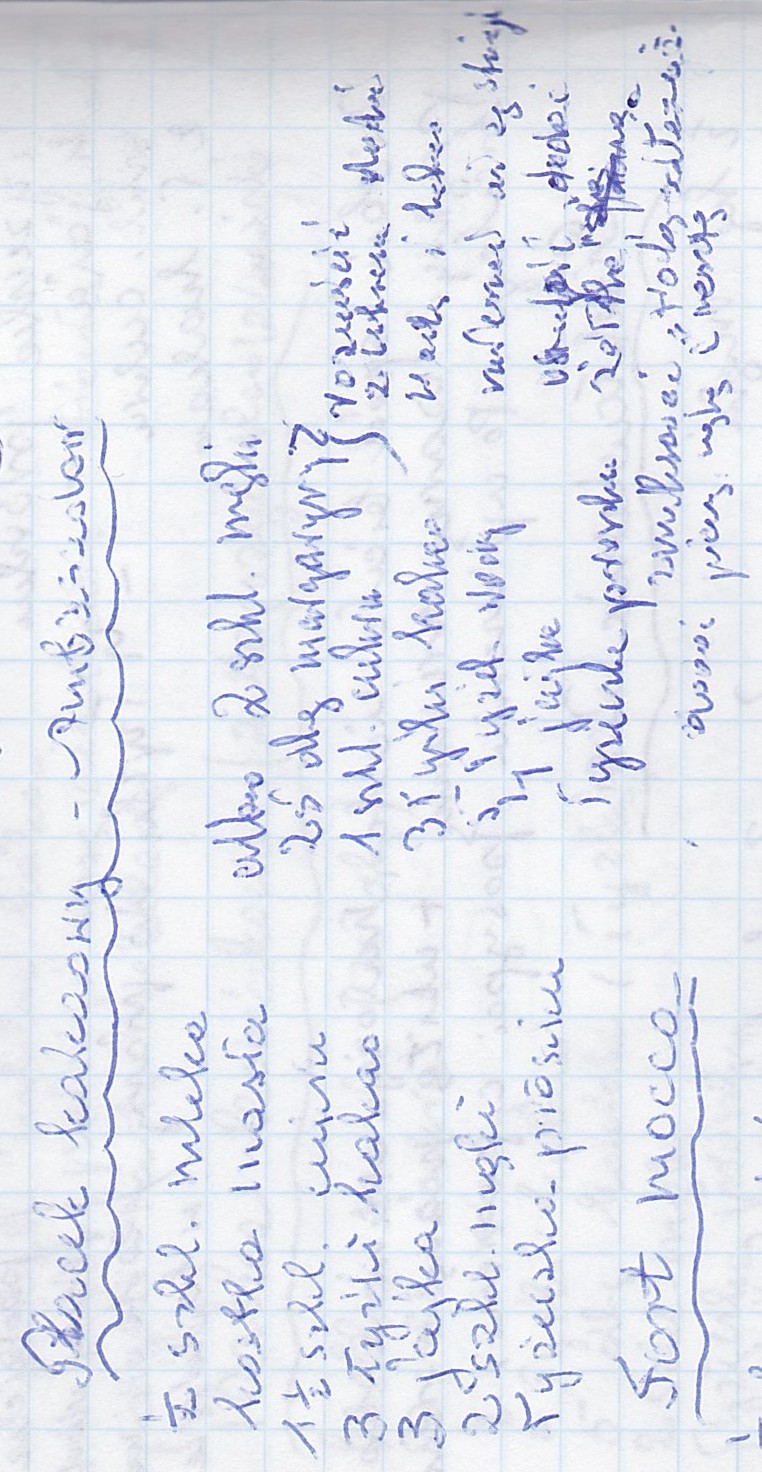 Placek kakaowy - Ambasador
½ szkl. mleka
kostka masła
1 ½ szkl. cukru
3 łyżki kakao
3 jajka
2 szkl. mąki
łyżeczka proszku
albo 2 szkl. mąki
25 dkg margaryny
1 szkl. cukru
3 łyżki kakao
5 łyżek wody
4 jajka
łyżeczka proszku
rozpuścić
z cukrem dodać
wodę i kakao
aż
dodać
żółtka
zmiksować
dodać pianę, mąkę i resztę
Tort mocca